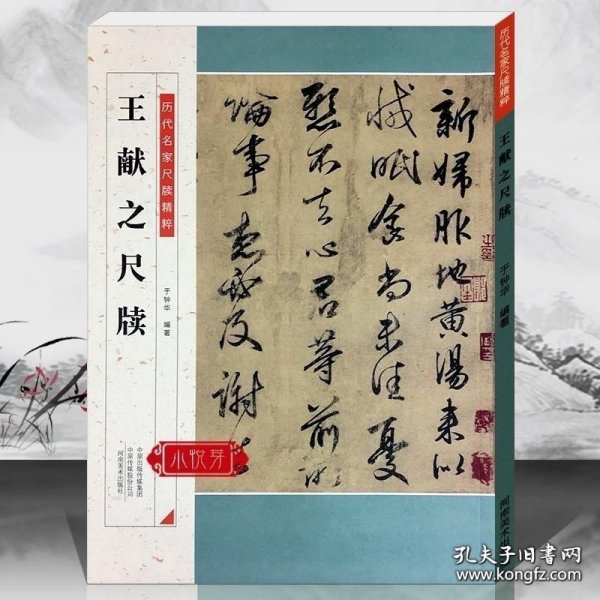 历代名家尺牍精粹
王献之尺牍
于钟华 编著
中原出版传媒集团
中原传媒股份公司
河南美术出版社
新妇服地黄汤来似
减眠食尚未佳忧
悬不去心君等前所
论事想必及谢
小悦芽
历代名家尺牍精粹
王献之尺牍
于钟华 编著
河南美术出
孔夫子旧书网
www.kongfz.com